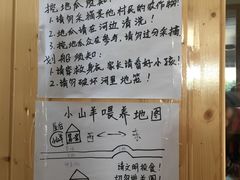 挖地瓜须知：
1.请勿采摘其他村民的农作物！
2.地瓜请在河边清洗！
3.挖地瓜众在参与，请勿过分采摘
划船须知：
1.请穿救身衣，家长请看好小孩！
2.请勿破坏河里地笼！
小山羊喂养地图
西
东
请文明投食！